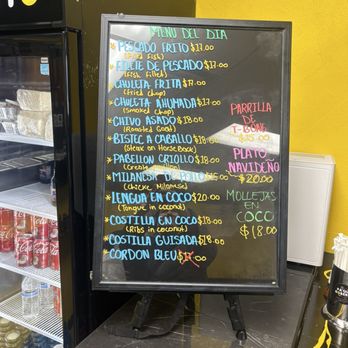 MENU DEL DIA
*PESCADO FRITO $17.00
(Fried fish)
*FILETE DE PESCADO $17.00
(Fish fillet)
*CHULETA FRITA $17.00
(Fried chop)
*CHULETA AHUMADA $17.00
(Smoked chop)
*CHIVO ASADO $18.00
(Roasted Goat)
*BISTEC A CABALLO $18.00
(Steak on Horseback)
*PABELLON CRIOLLO $18.00
(Creole
*MILANESA DE POLLO $15.00
(Chicken Milanese)
*LENGUA EN COCO $20.00
(Tongue in coconut)
*COSTILLA EN COCO $18.00
(Ribs in coconut)
*COSTILLA GUISADA $18.00
*CORDON BLEU $17.00
PARRILLA
DE
T-BONE
PLATO
NAVIDEÑO
$20.00
MOLLEJAS
EN
COCO
$18.00